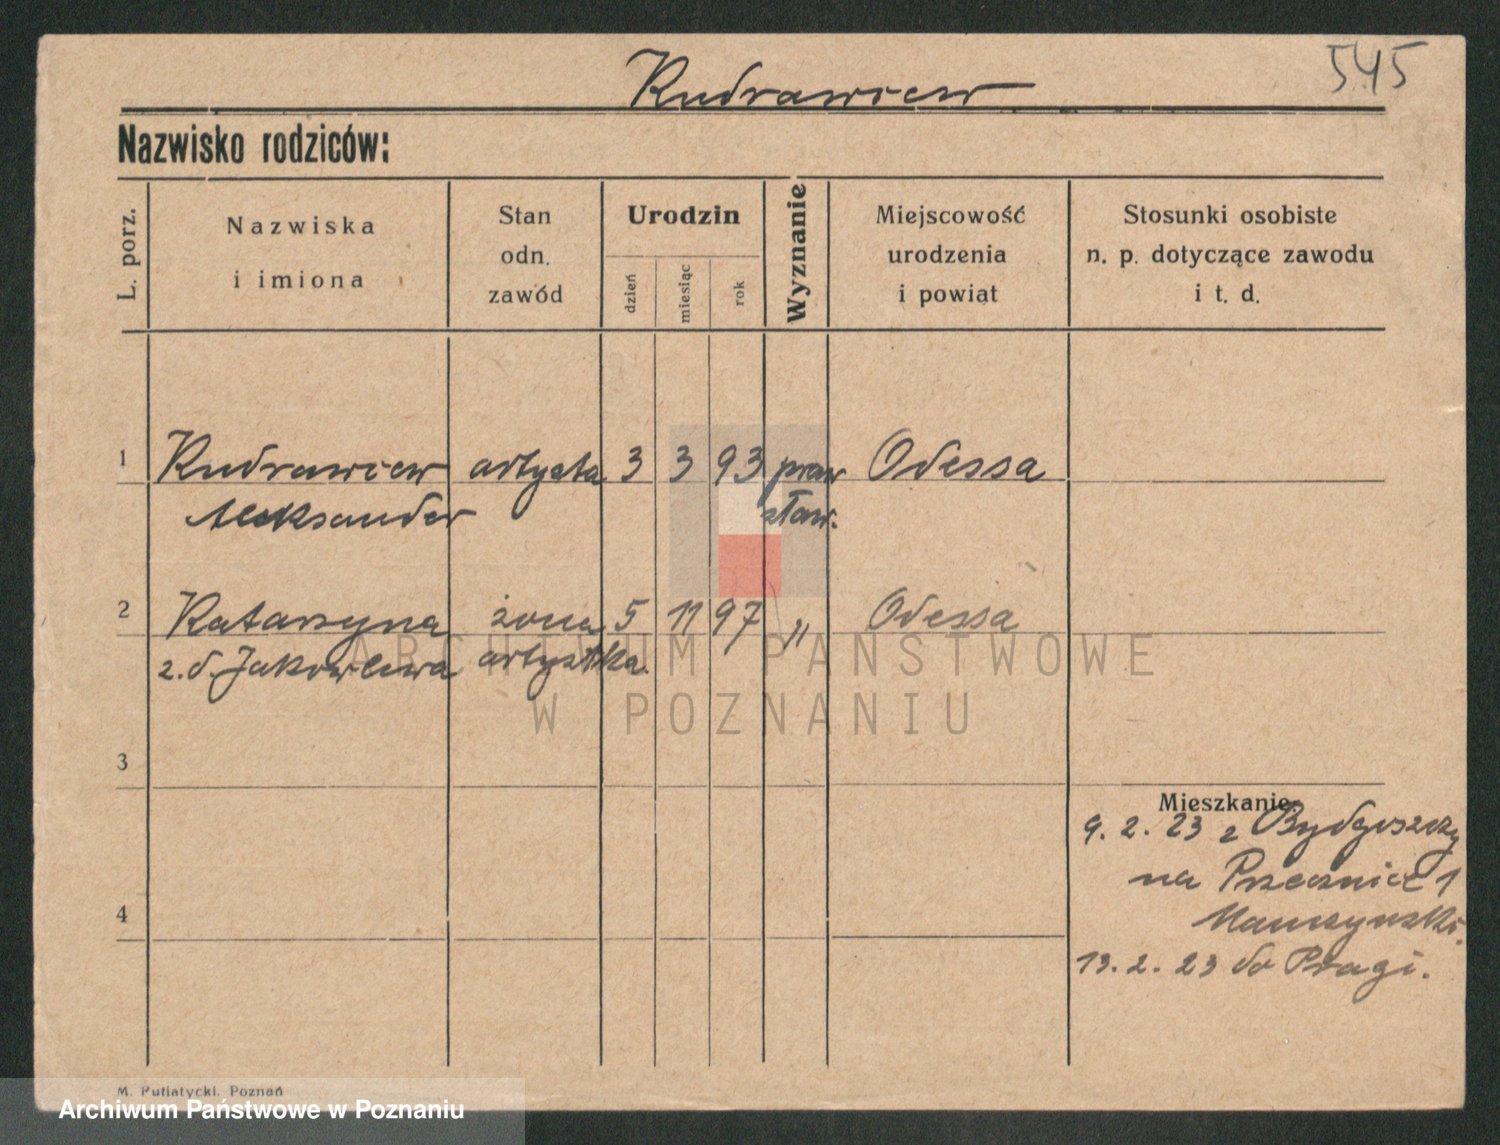 Kudrawiew 545
Nazwisko rodziców:
L. porz.
Nazwiska
i imiona
Stan
odn.
zawód
Urodzin
dzień
miesiąc
rok
Wyznanie
Miejscowość
urodzenia
i powiat
Stosunki osobiste
n. p. dotyczące zawodu
i t. d.
1 Kudrawiew artysta 3 3 93 praw Odessa
Aleksander sław.
2 Katarzyna żona 5 11 97 " Odessa
z. d. Jakowlewa artystka.
ARCHIWUM PAŃSTWOWE
W POZNANIU
3
Mieszkanie
9. 2. 23 z Bydgoszczy
na Przecznicę 1
4
13. 2. 23 do Pragi.
M. Putiatycki, Poznań
Archiwum Państwowe w Poznaniu